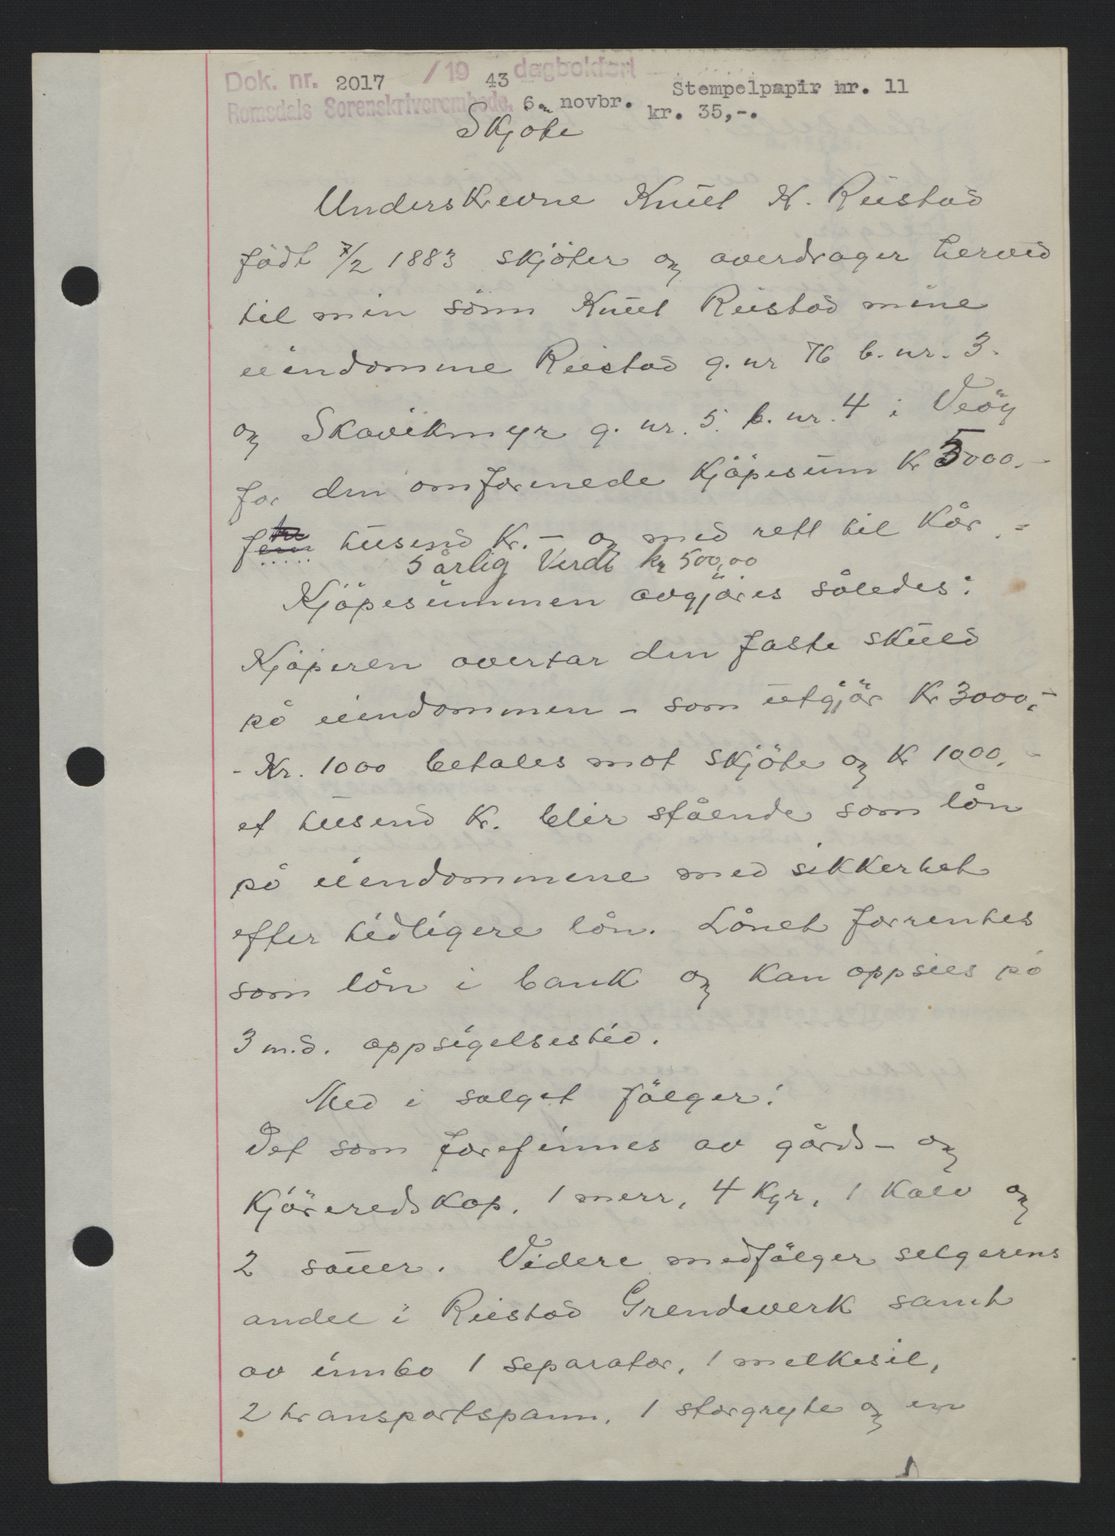 Dok. nr. 2017 /19 43 dagbokført
Stempelpapir nr. 11
Romsdals Sorenskriverembede, 6. novbr. kr. 35,-.
Skjöte
Underskrevne Knut K. Ristad
född 7/2 1883 skjöter og averdrager herved
til min sönn Knut Ristad mine
eiendomme Ristad g. nr 76 b. nr. 3.
og Skavikmyr g. nr. 5. b. nr. 4 i Veöy
for den omforenede Kjöpesum Kr 5000.-
fem tusend Kr. - og med rett til Kår.-
5 årlig Verdi kr 500,00
Kjöpesummen avgjöres således:
Kjöperen overtar den faste skuld
på eiendommen - som utgjör Kr 3000.-
- Kr. 1000 betales mot skjöte og Kr 1000.-
et tusend Kr. blir stående som lån
på eiendommene med sikkerhet
efter tidligere lån. Lånet forrentes
som lån i bank og kan oppsies på
3 m.d. oppsigelsestid.
Med i salget fölger:
Det som forefinnes av gårds- og
Kjöreredskap. 1 merr, 4 Kyr, 1 Kalv og
2 sauer. Videre medfölger selgerens
andel i Ristad Grendeverk samt
av innbo 1 separator, 1 melkesil,
2 transportspann, 1 storgryte og en